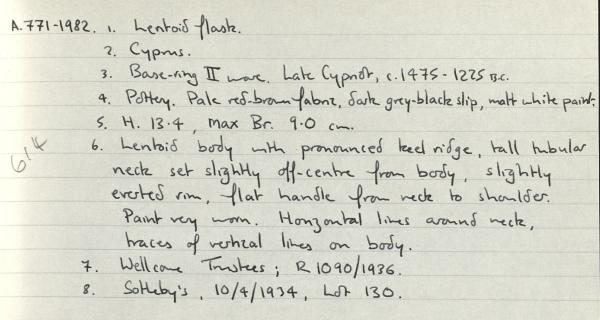 A.771-1982. 1. Lentoid flask.
2. Cyprus.
3. Base-ring II ware. Late Cypriot, c.1475-1225 B.C.
4. Pottery. Pale red-brown fabric, dark grey-black slip, matt white paint.
5. H. 13.4, Max Br. 9.0 cm.
6. Lentoid body with pronounced keel ridge, tall tubular
neck set slightly off-centre from body, slightly
everted rim, flat handle from neck to shoulder.
Paint very worn. Horizontal lines around neck,
traces of vertical lines on body.
7. Wellcome Trustees; R1090/1936.
8. Sotheby's, 10/4/1934, Lot 130.